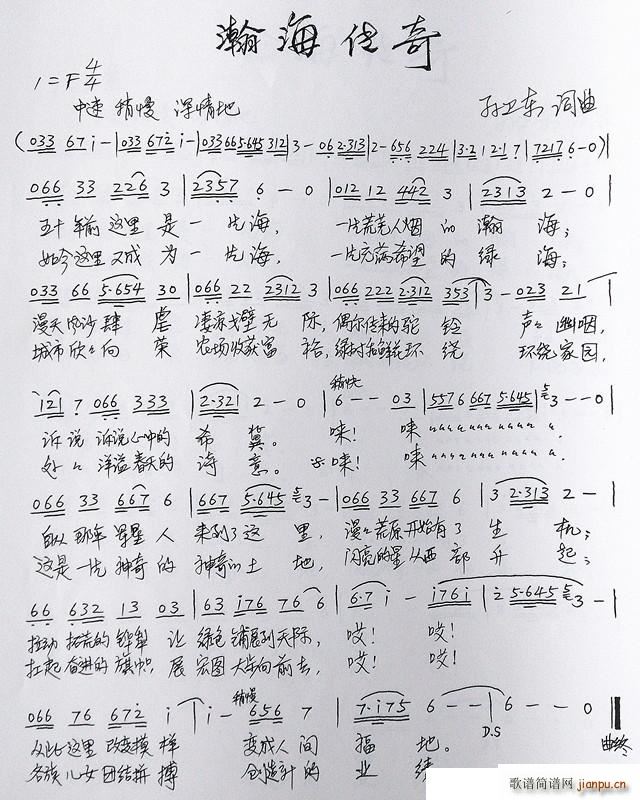 瀚海传奇
1=F 4/4
中速 稍慢 深情地
孙卫东 词曲
(033 67 i-|033 672 i-|033 66 5·645 312|3-06 2·313|2-656 224|3·2 12·17|7217 6-0)|
066 33 226 3|2357 6-0|012 12 442 3|2313 2-0|
五十年前这里是一片海, 一片荒芜人烟的瀚海;
如今这里又成为一片海, 一片充满希望的绿海;
033 66 5·654 30|066 22 2312 3|066 222 2·312 353|3-023 21|
漫天风沙肆虐 凄凉戈壁无际,偶尔传来的驼铃 声々幽咽,
城市欣々向荣 农场收获富裕,绿树和鲜花环绕 环绕家园,
i21 7 066 333|2·321 2-0|6--03|5576 667 5·645|3--0|
稍快
诉说 诉说心中的希冀。 唻! 唻
处々洋溢春天的诗意。 唻! 唻
066 33 667 6|667 5·645 3-|066 33 667 6|3 2·313 2-|
自从那年星星人来到了这里, 漫々荒原开始有了生机;
这是一片神奇的神奇的土地, 闪亮的星从西部升起;
66 632 13 03|63 i76 76 6|6·7 i-|i76i|2 5·645 3-|
拉动拓荒的铧犁 让绿色铺展到天际, 哎! 哎!
扛起奋进的旗帜, 展宏图大步向前去, 哎! 哎!
稍慢
066 76 672 i|i-656 7|7·i75 6--|6--0|
D.S
曲终
从此这里改变模样 变成人间福地。
各族儿女团结拼搏 创造新的业绩
歌谱简谱网
jianpu.cn